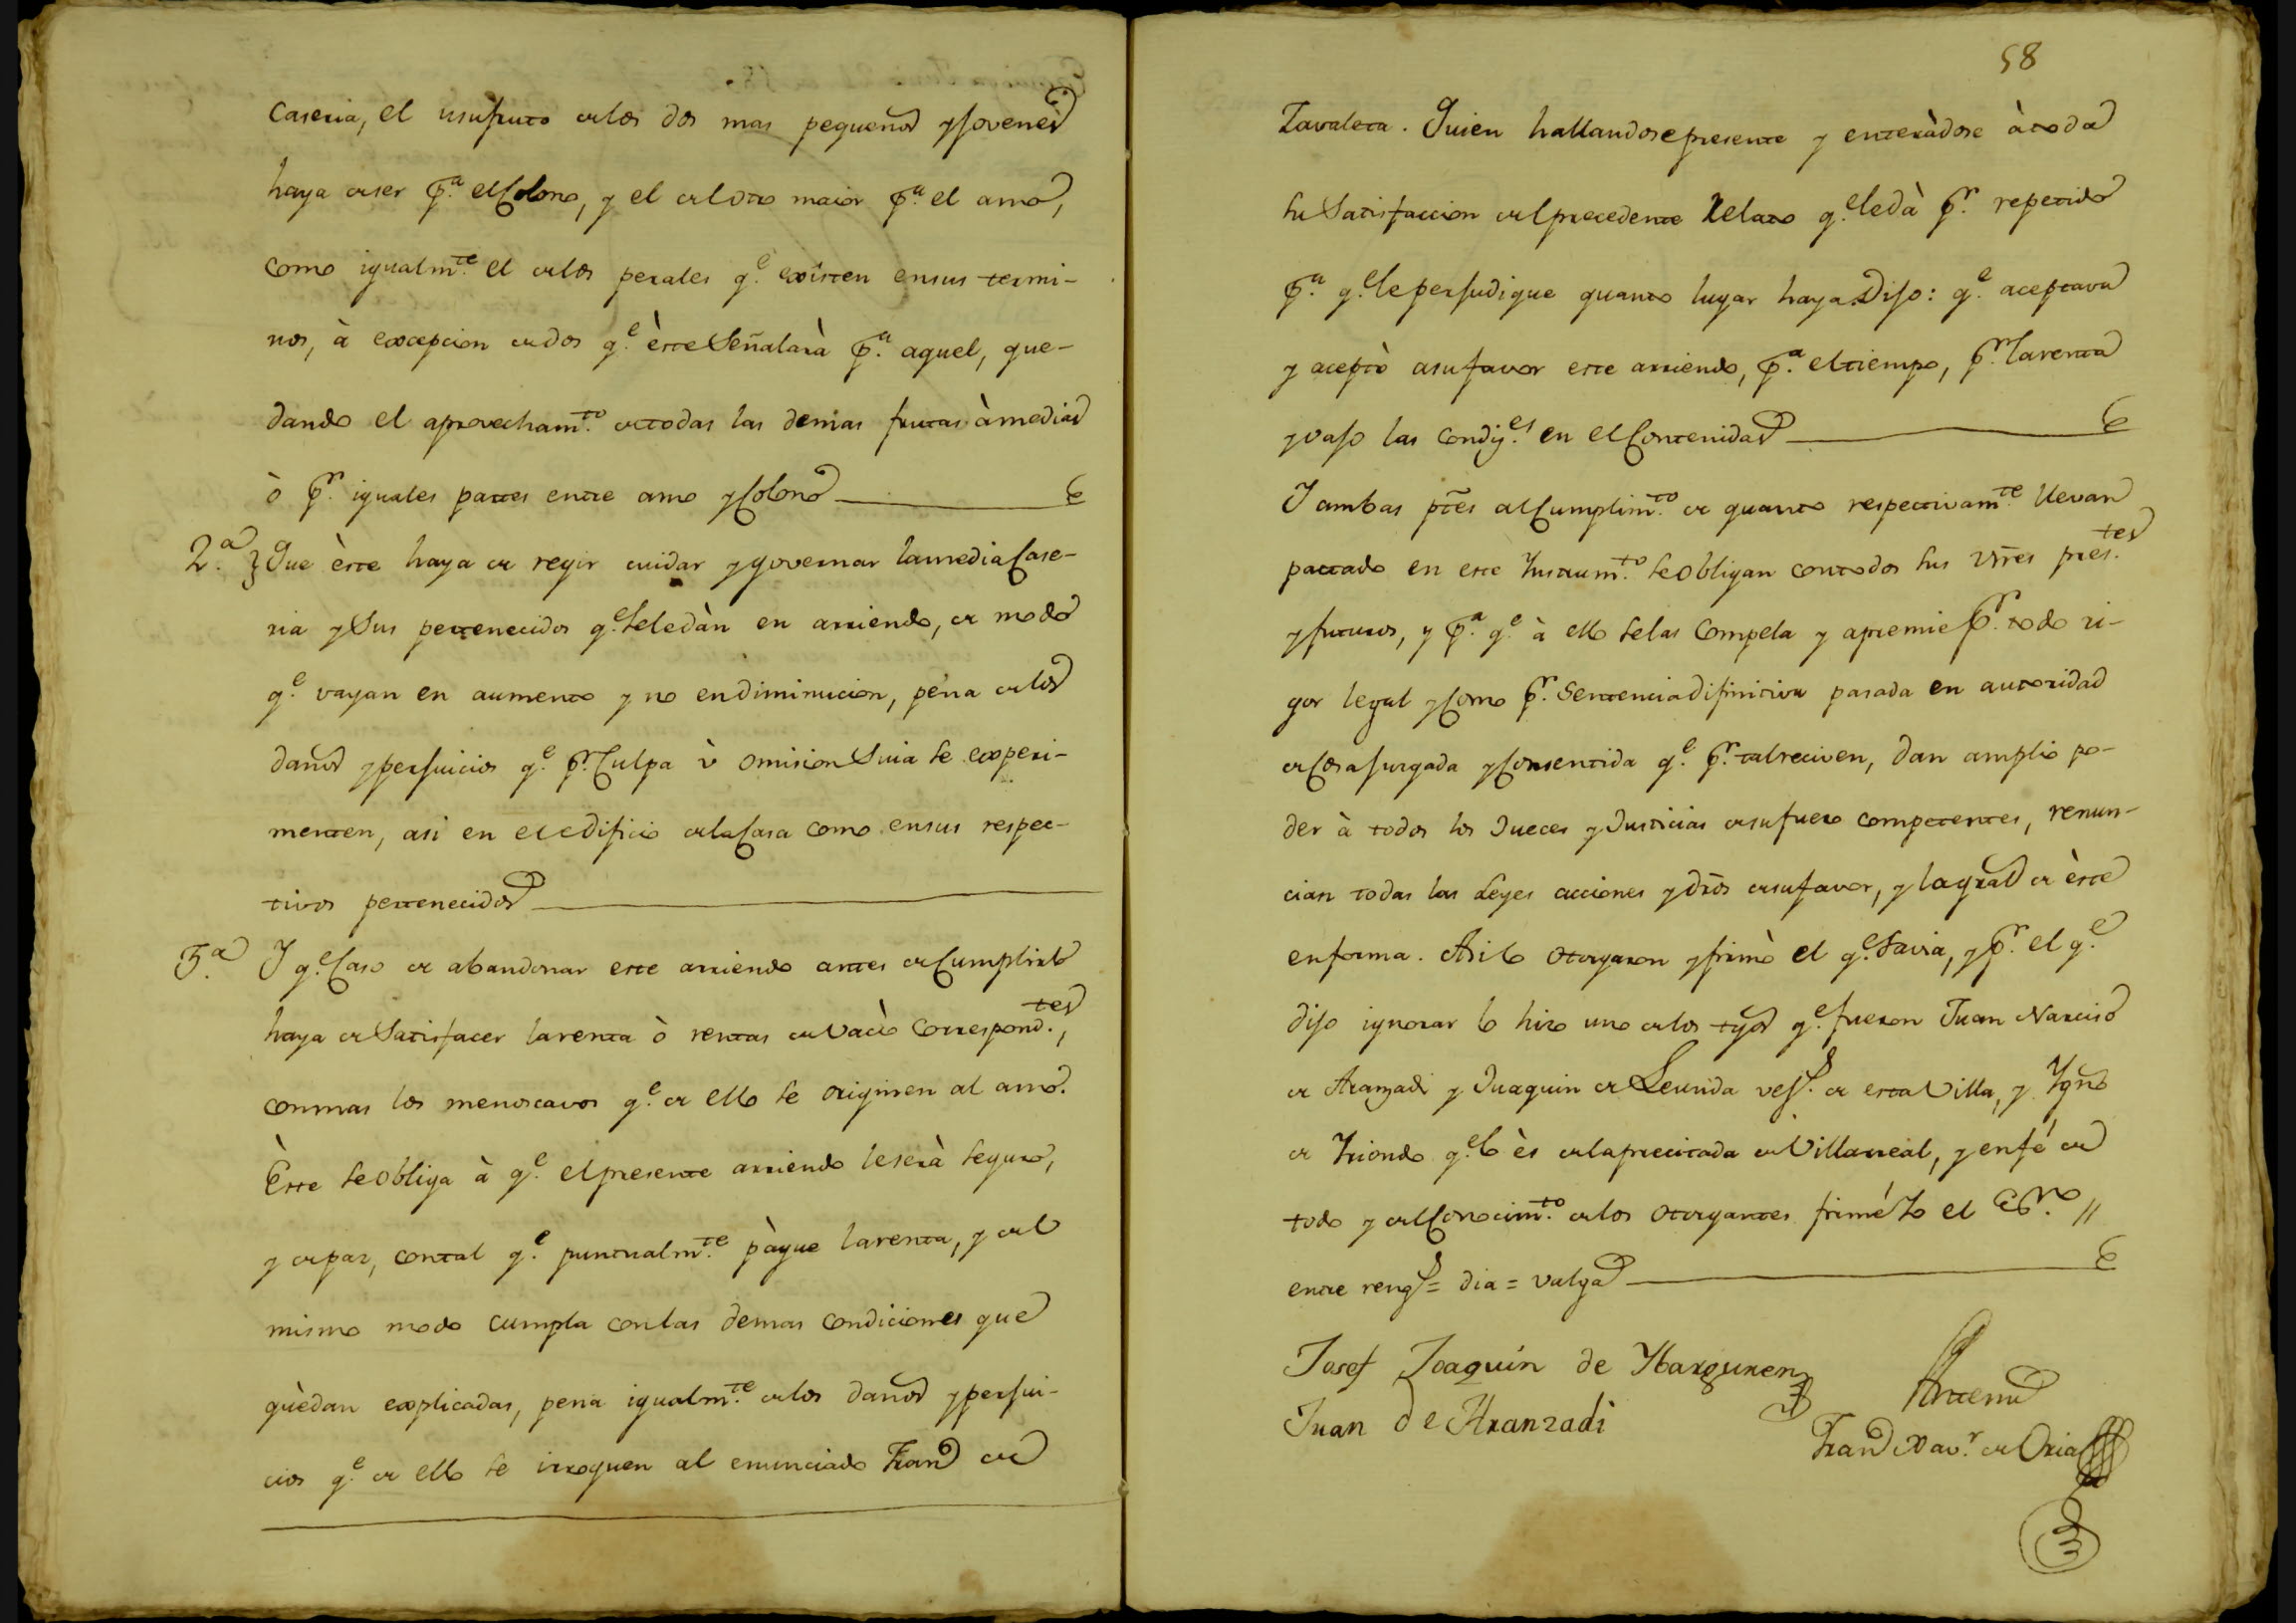 caseria, el usufruto de los dos mas pequeños y jovenes
haya de ser p.ª el Colono, y el del otro maior p.ª el amo,
como igualm.te el de los perales q.e existen en sus termi-
nos, à excepcion de dos q.e èste Señalarà p.ª aquel, que-
dando el aprovecham.to de todas las demas frutas à medias
ò p.r iguales partes entre amo y Colono
2.ª Que èste haya de regir cuidar y governar la media Case-
ria y Sus pertenecidos q.e se le dàn en arriendo, de modo
q.e vayan en aumento y no en diminucion, pena de los
daños y perjuicios q.e p.r Culpa ù omision Suia se experi-
menten, asi en el edificio de la Casa como en sus respec-
tivos pertenecidos
3.ª Y q.e Caso de abandonar este arriendo antes de Cumplirlo
haya de Satisfacer la renta ò rentas de Vacìo Correspond.tes,
con mas los menoscavos q.e de ello se originen al amo.
Èste se obliga à q.e el presente arriendo le serà seguro,
y de paz, con tal q.e puntualm.te pàgue la renta, y del
mismo modo cumpla con las demas condiciones que
quèdan explicadas, pena igualm.te de los daños y perjui-
cios q.e de ello se irroguen al enunciado Fran.co de
58
Zavaleta. Quien hallandose presente y enteràdose à toda
su Satisfaccion del precedente Relato q.e le dà p.r repetido
p.ª q.e le perjudique quanto lugar haya Dijo: q.e aceptava
y aceptò a su favor este arriendo, p.ª el tiempo, p.r la renta
y vajo las condiz.es en el Contenidas
Y ambas ptes al Cumplim.to de quanto respectivam.te llevan
pactado en este Instrum.to se obligan con todos sus Vres pres.tes
y futuros, y p.ª q.e à ello se las Compela y apremie p.r todo ri-
gor legal y Como p.r Sentencia difinitiva pasada en autoridad
de Cosa juzgada y Consentida q.e p.r tal reciven, dan amplio po-
der à todos los Jueces y Justicias de su fuero competentes, renun-
cian todas las Leyes acciones y dros de su favor, y la gral de èste
en forma. Asi lo otorgaron y firmò el q.e Savia, y p.r el q.e
dijo ignorar lo hizo uno de los tgos q.e fueron Juan Narciso
de Aranzadi y Juaquin de Leunda vez.s de esta Villa, y Ygno
de Yriondo q.e lo ès de la precitada de Villarreal, y en fé de
todo y del Conocim.to de los otorgantes firmé Yo el Es.no //
entre reng.s = dia = valga
Josef Joaquin de Ybarguren
Juan de Aranzadi
Ante mi
Fran.co Xav.r de Oria